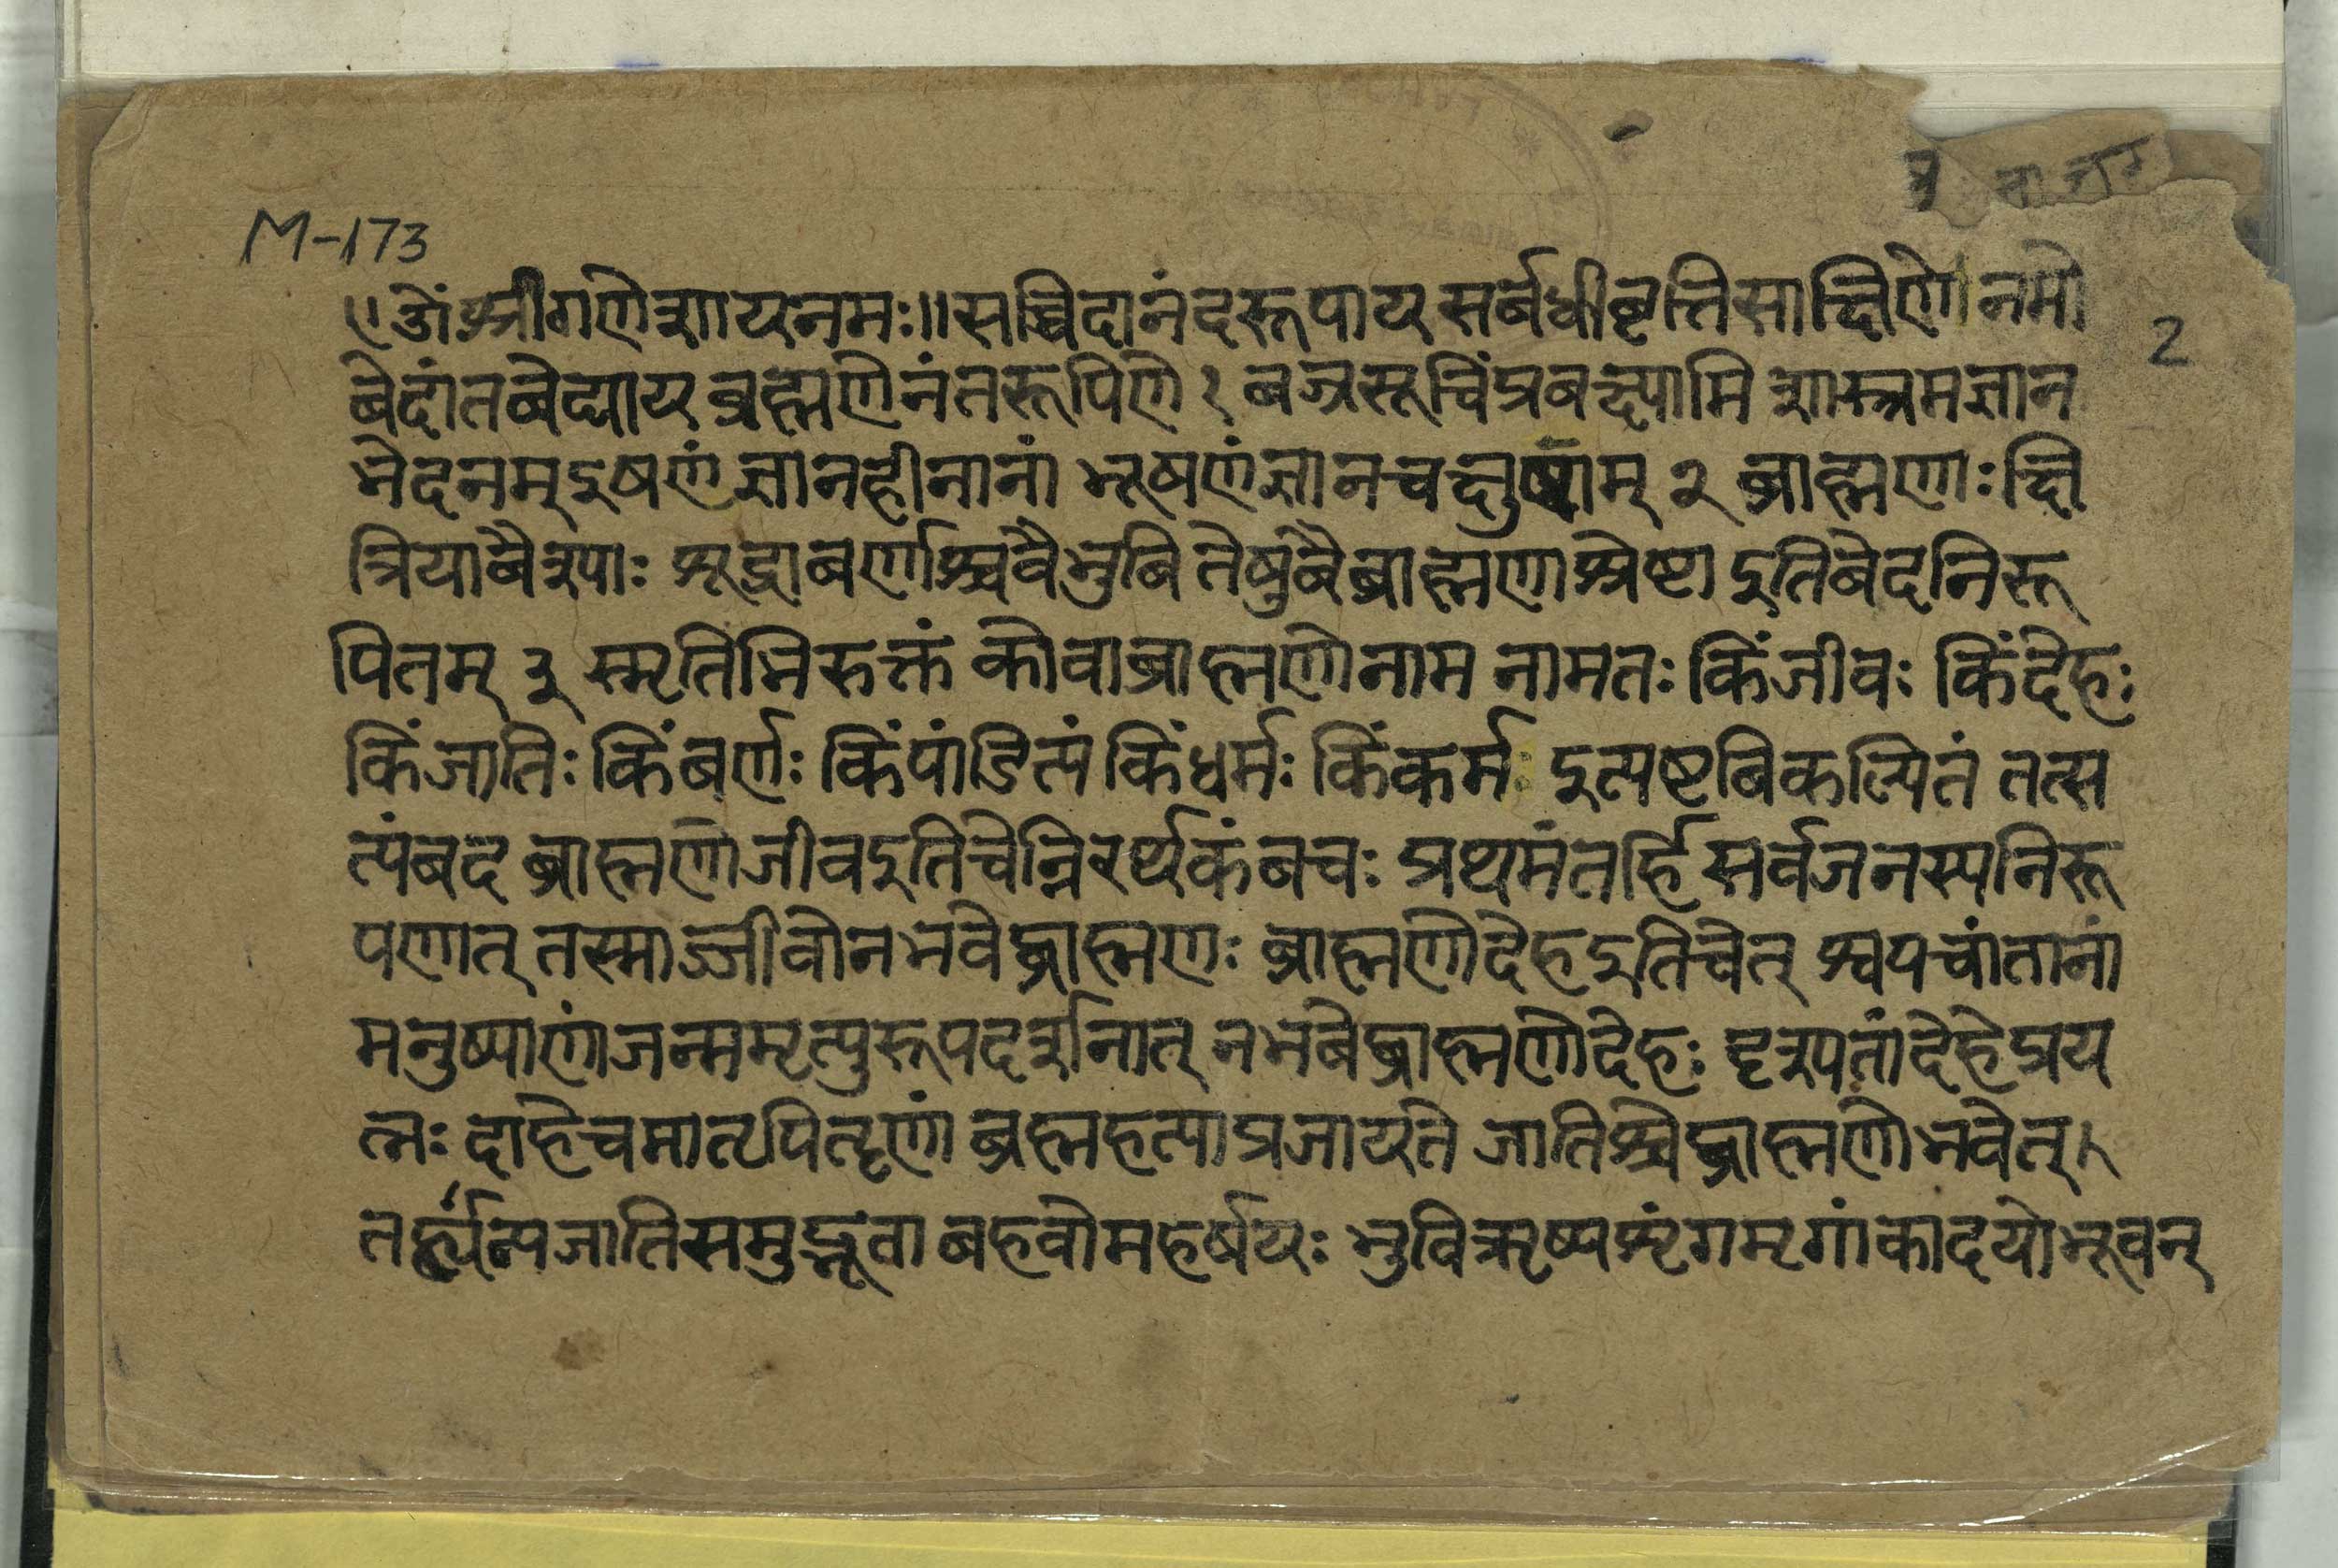 M-173
॥ओंश्रीगणेशायनमः॥सच्चिदानंदरूपाय सर्बधीबृत्तिसाक्षिणे।नमो
2
बेदांतबेद्याय ब्रह्मणेनंतरूपिणे १ बज्रसूचिंप्रबक्ष्यामि शास्त्रमज्ञान
भेदनम् दुषणंज्ञानहीनानां भूषणंज्ञानचक्षुषाम् २ ब्राह्मणाः क्षि
त्रियाबैश्याः शूद्राबर्णाश्चवैभुबि तेषुबैब्राह्मणाश्रेष्टा इतिबेदनिरू
पितम् ३ स्मृतिभिरुक्तं कोवाब्राह्मणोनाम नामतः किंजीवः किंदेहः
किंजातिः किंबर्णः किंपांडित्यं किंधर्मः किंकर्मः इत्यष्टबिकल्पितं तत्स
त्यंबद ब्राह्मणोजीवइतिचेन्निरर्थकंबचः प्रथमंतर्हि सर्वजनस्यनिरू
पणात् तस्माज्जीवोनभवेद्ब्राह्मणः ब्राह्मणोदेहइतिचेत् श्वपचांतानां
मनुष्याणांजन्ममृत्युरूपदर्शनात् नभबेद्ब्राह्मणोदेहः दृश्यतांदेहेप्रय
त्नः दाहेचमातृपितृणां ब्रह्महत्याप्रजायते जातिश्चेद्ब्राह्मणोभवेत्।
तर्ह्यन्यजातिसमुद्भूता बहवोमहर्षयः भुविऋष्यशृंगमृगांकादयोभूवन्